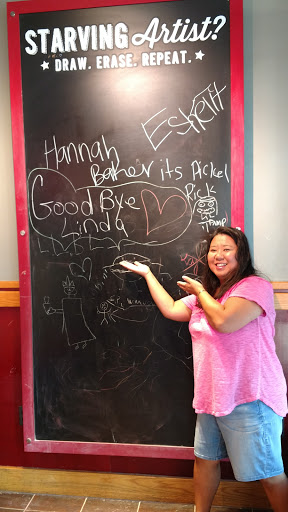 STARVING Artist?
★ DRAW. ERASE. REPEAT. ★
ESKETIT
Hannah
Baker its Pickel
Rick
Good Bye
Linda